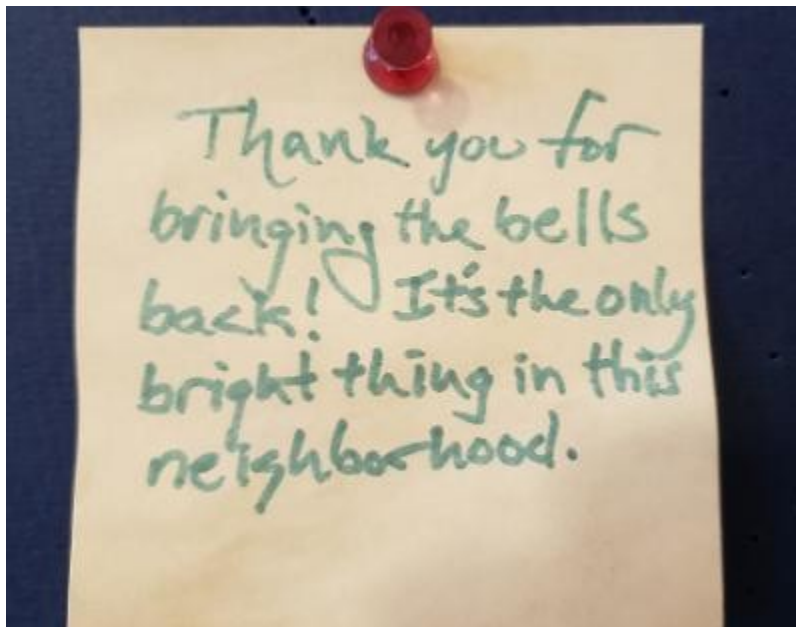 Thank you for
bringing the bells
back! It's the only
bright thing in this
neighborhood.